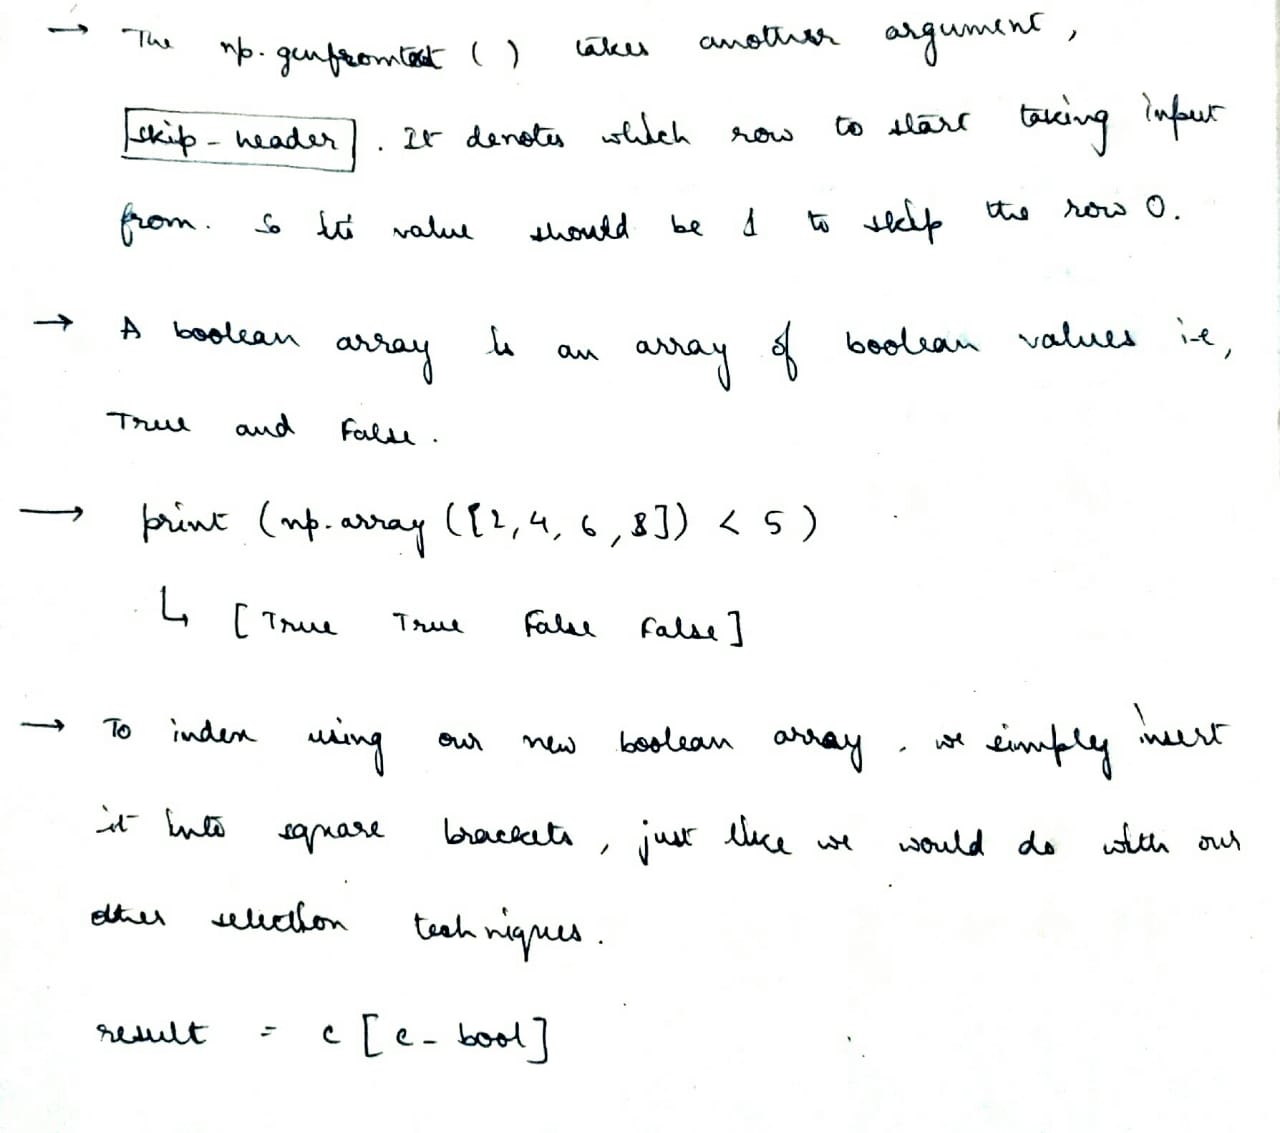 → The np.genfromtxt ( ) takes another argument,
skip_header . It denotes which row to start taking input
from. So its value should be 1 to skip the row 0.
→ A boolean array is an array of boolean values i.e,
True and False.
→ print (np.array ([2, 4, 6, 8]) < 5 )
↳ [ True True False False]
→ To index using our new boolean array, we simply insert
it into square brackets, just like we would do with our
other selection techniques.
result = c [c_bool]